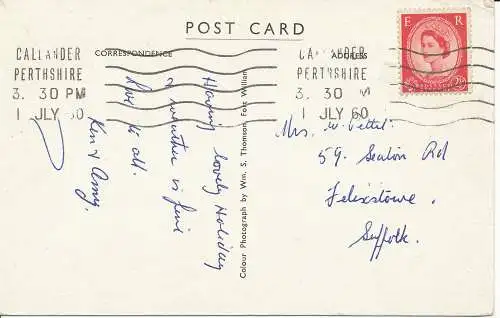 POST CARD
CALLANDER
PERTHSHIRE
3. 30 PM
1 JLY 60
CORRESPONDENCE
ADDRESS
CALLANDER
PERTHSHIRE
3. 30 PM
1 JLY 60
E R
Having lovely Holiday
& weather is fine
love to all.
Ken & Amy.
Colour Photograph by Wm. S. Thomson, Fort William
Mrs. W. Pettit.
59. Seaton Rd
Felixstowe.
Suffolk.